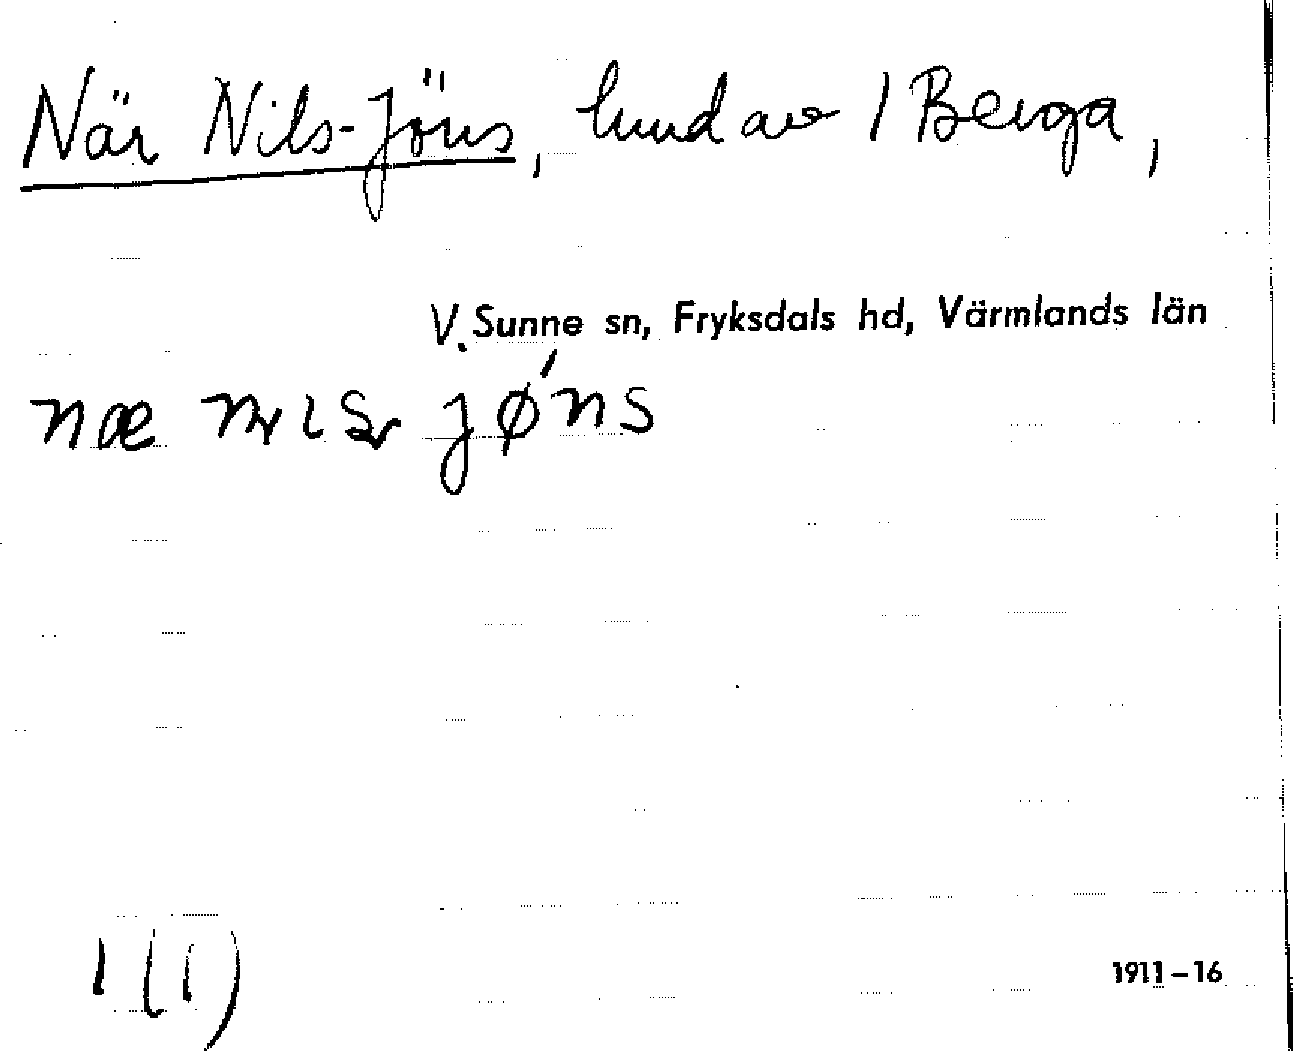 När Nils-Jöns, hmd av 1 Berga,
V. Sunne sn, Fryksdals hd, Värmlands län
1 (1)
1911-16